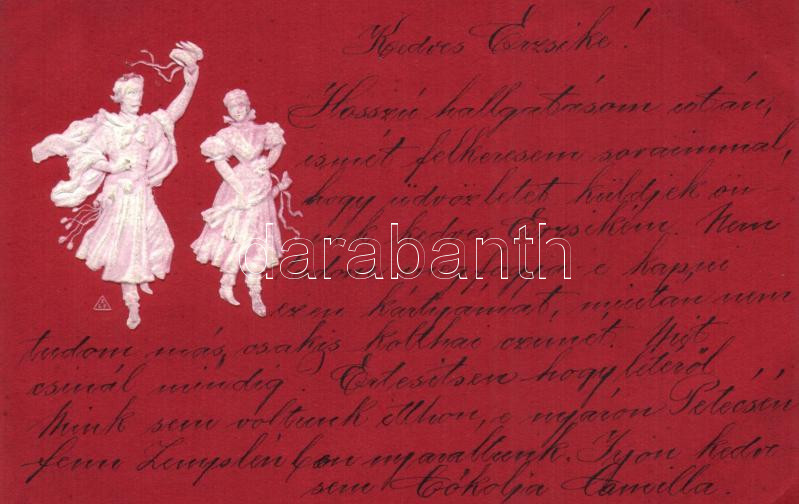 Kedves Erzsike!
Hosszú hallgatásom után,
ismét felkeresem soraimmal,
hogy üdvözletet küldjek ön
nek kedves Erzsikém. Nem
tudom meg fogja-e kapni
ezen kártyámat, miután nem
tudom más, csakis czimét. Mit
csinál mindig. Értesítsen hogylétéről
Mink sem voltunk itthon, e nyáron
fenn Zemplénben nyaraltunk. Irjon kedve
sem Csókolja Camilla.
darabanth